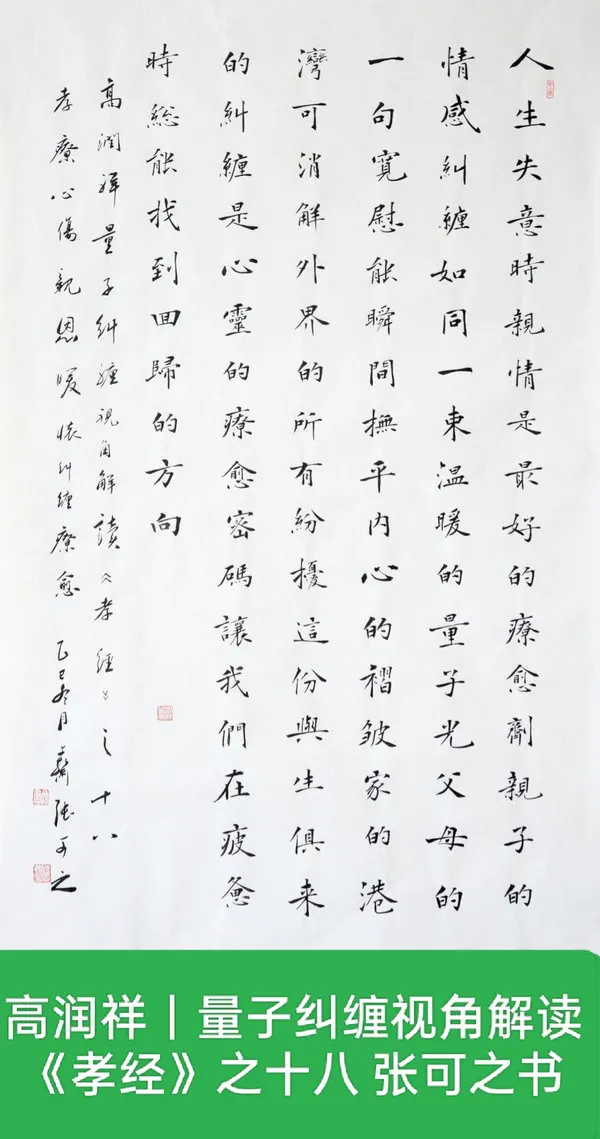 人生失意時親情是最好的療愈劑親子的
情感糾纏如同一束温暖的量子光父母的
一句寬慰能瞬間撫平内心的褶皺家的港
灣可消解外界的所有紛擾這份與生俱来
的糾纏是心靈的療愈密碼讓我們在疲惫
時総能找到回歸的方向
高润祥量子糾纏視角解讀《孝經》之十八
孝療心傷親恩暖懷糾纏療愈 乙巳冬月 張可之
高润祥丨量子纠缠视角解读
《孝经》之十八 张可之书